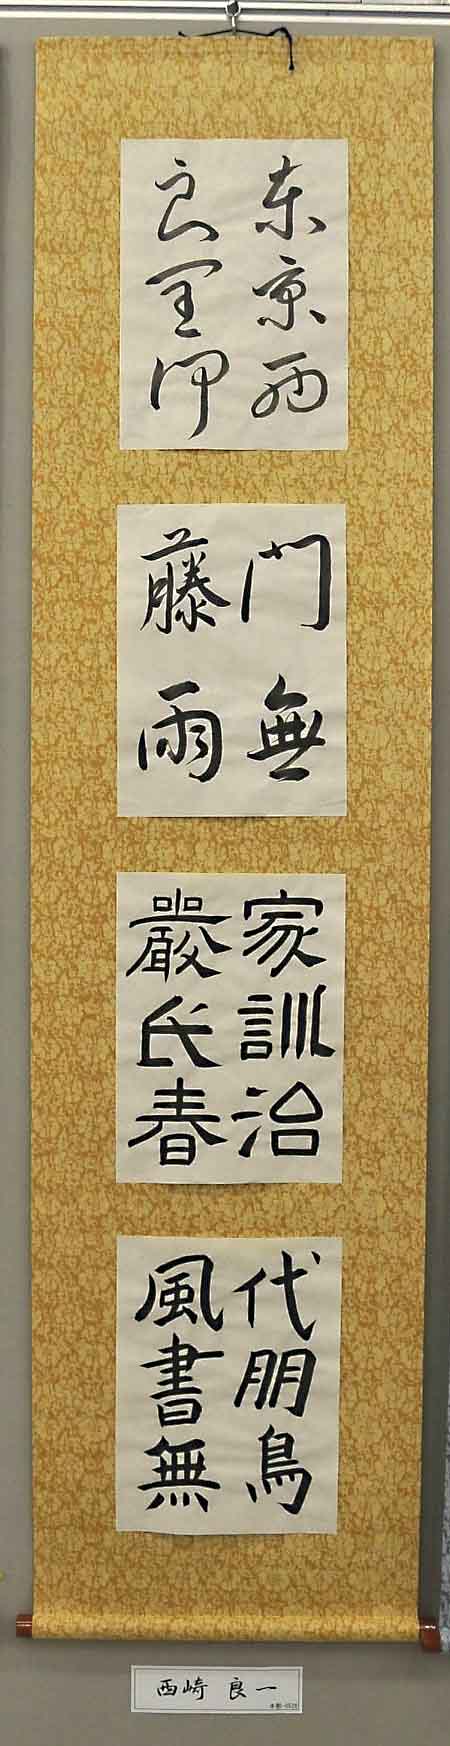 東京西
良里仰
門無
藤雨
家訓治
嚴氏春
代朋鳥
風書無
西崎 良一